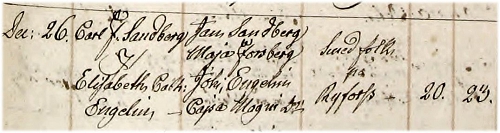 Dec: 26. Carl J. Sandberg Jan Sandberg
Maja Forsberg Smed folk
Elisabeth Cath: Joh. Engelin
Engelin — Cajsa Magni Dr Ryforss - 20. 23.